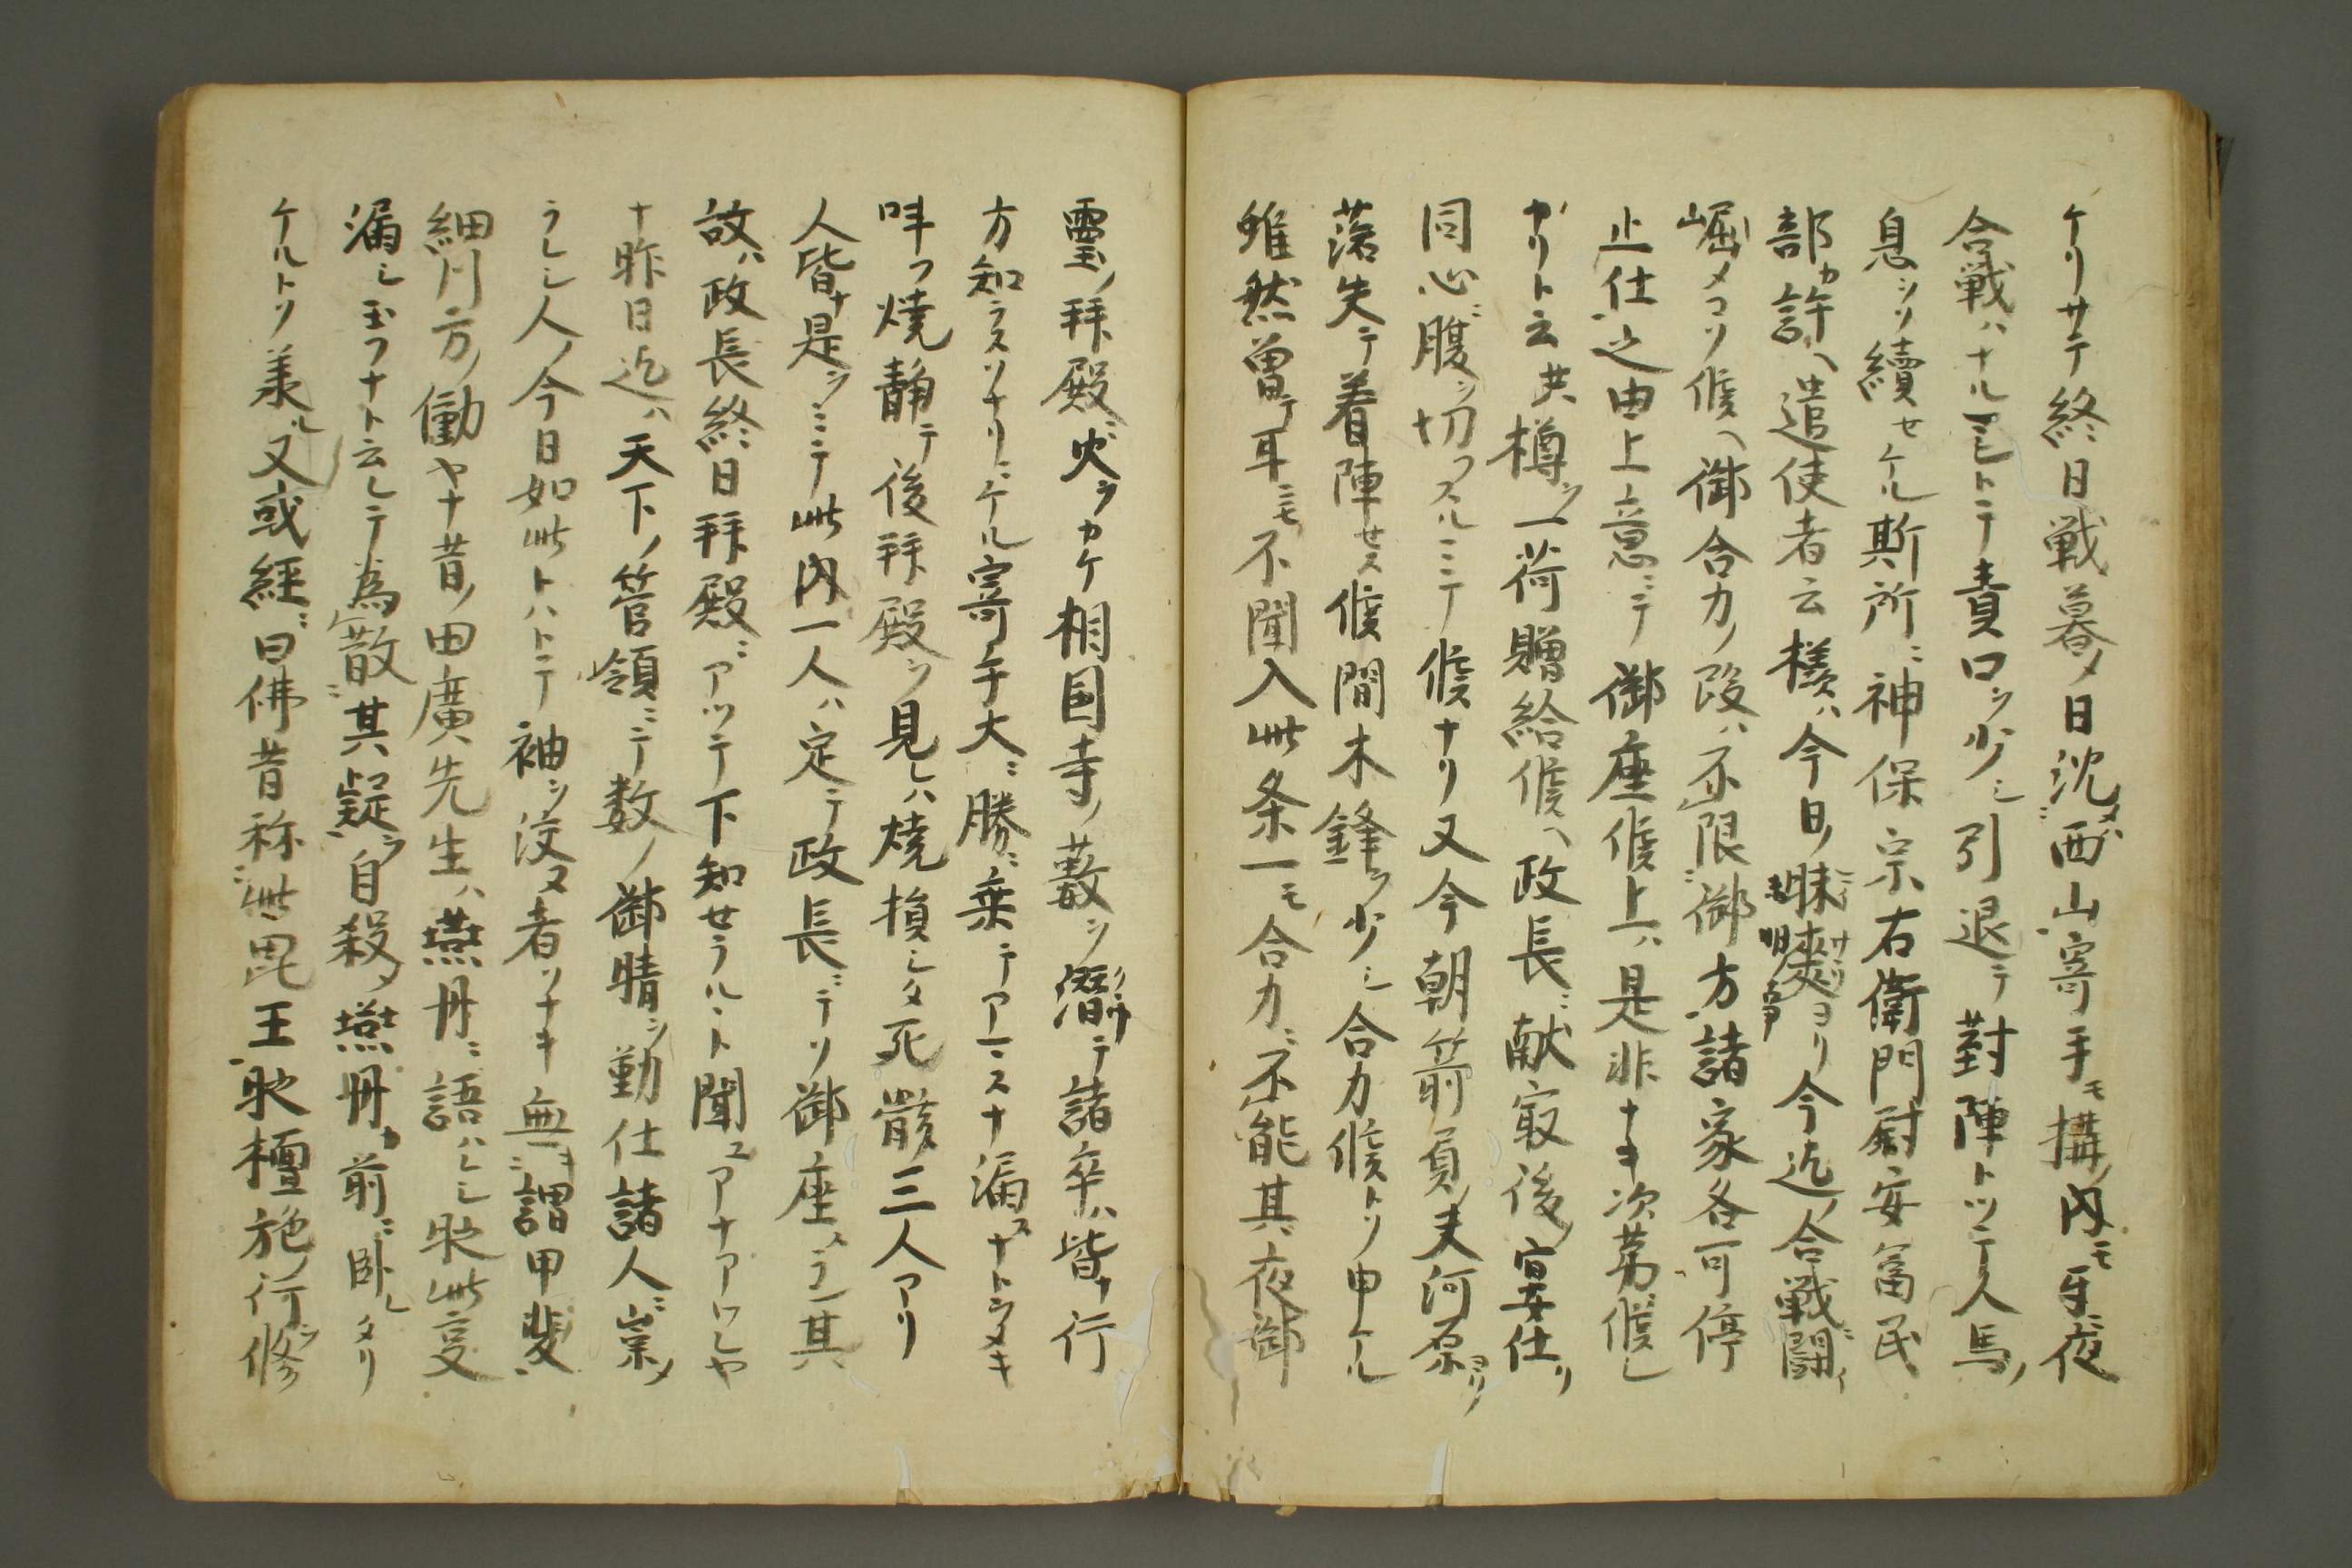 ケリサテ終日戦暮メ日沈メハ西山ニ寄手モ構ノ内モ互ニ夜
合戦ハナルマシトテ責口ヲ少シ引退テ對陣トツテ人馬ノ
息ヲソ續セケル斯所ニ神保宗右衛門尉安富民
部カ許ヘ遣使者云様ハ今日ノ昧爽ヨリ今迄ノ合戦闘ニイ
崛メコソ候ヘ御合力ノ段ハ不限御方ニ諸家各可停
止仕之由上意ニテ御座候上ハ是非ナキ次第候シ
カリト云共樽ヲ一荷贈給候ヘ政長ニ献㝡後ノ宴仕リ
同心ニ腹ヲ切ラスルニテ候ナリ又今朝箭負ノ夫河原ヨリ
落失テ着陣セス候間木鋒ヲ少シ合力候トソ申ケル
雖然曽テ耳ニモ不聞入此条一モ合力ニ不能其夜御
霊ノ拝殿ニ火ヲカケ相国寺ノ薮ヲ潜テ諸卒ハ皆々行
方知ラスソナリニケル寄手大ニ勝ニ乗テアマスナ漏スナトヲメキ
叫フ焼静テ後拝殿ヲ見レハ焼損シタ死骸三人アリ
人皆ナ是ヲミテ此内一人ハ定テ政長ニテソ御座スラン其
故ハ政長終日拝殿ニアツテ下知セラルヽト聞ユアナアハレヤ
ナ昨日迄ハ天下ノ管領ニテ数ノ御晴ヲ勤仕諸人ニ崇メ
ラレシ人ノ今日如此トハトテ袖ヲ湿ヌ者ソナキ無謂甲斐
細川方ノ働ヤナ昔ノ田廣先生ハ燕丹ニ語ハレシ耿此㕝
漏シ玉フナト云レテ為散其疑ヲ自殺メ燕丹カ前ニ臥シタリ
ケルトソ義ル又或経ニ曰佛昔称此毘王耿檀施ノ行ヲ修